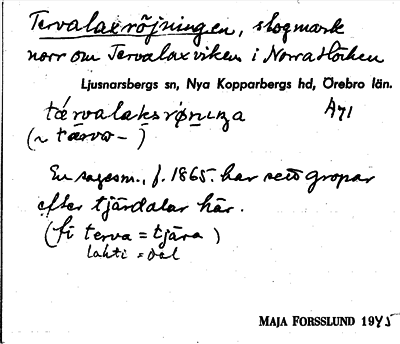 Tervalaxröjningen, skogmark
norr om Tervalaxviken i Norra Hörken
Ljusnarsbergs sn, Nya Kopparbergs hd, Örebro län.
tærvalaksrøniŋa A71
(~ tærvo- )
En sagesm., f. 1865. har sett gropar
efter tjärdalar här.
(fi terva = tjära )
lahti = dal
MAJA FORSSLUND 1945